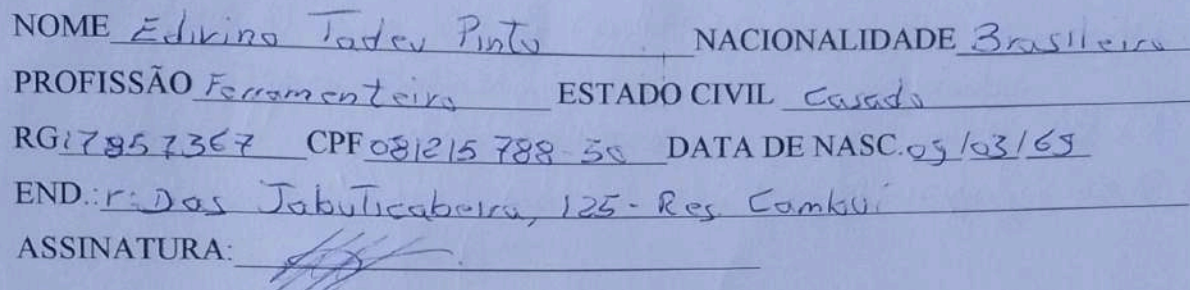 NOME Edivino Tadeu Pinto NACIONALIDADE Brasileiro
PROFISSÃO Ferramenteiro ESTADO CIVIL Casado
RG 17957367 CPF 081215788-50 DATA DE NASC. 09/03/69
END.: r: Das Jabuticabeira, 125 - Res Cambui
ASSINATURA: